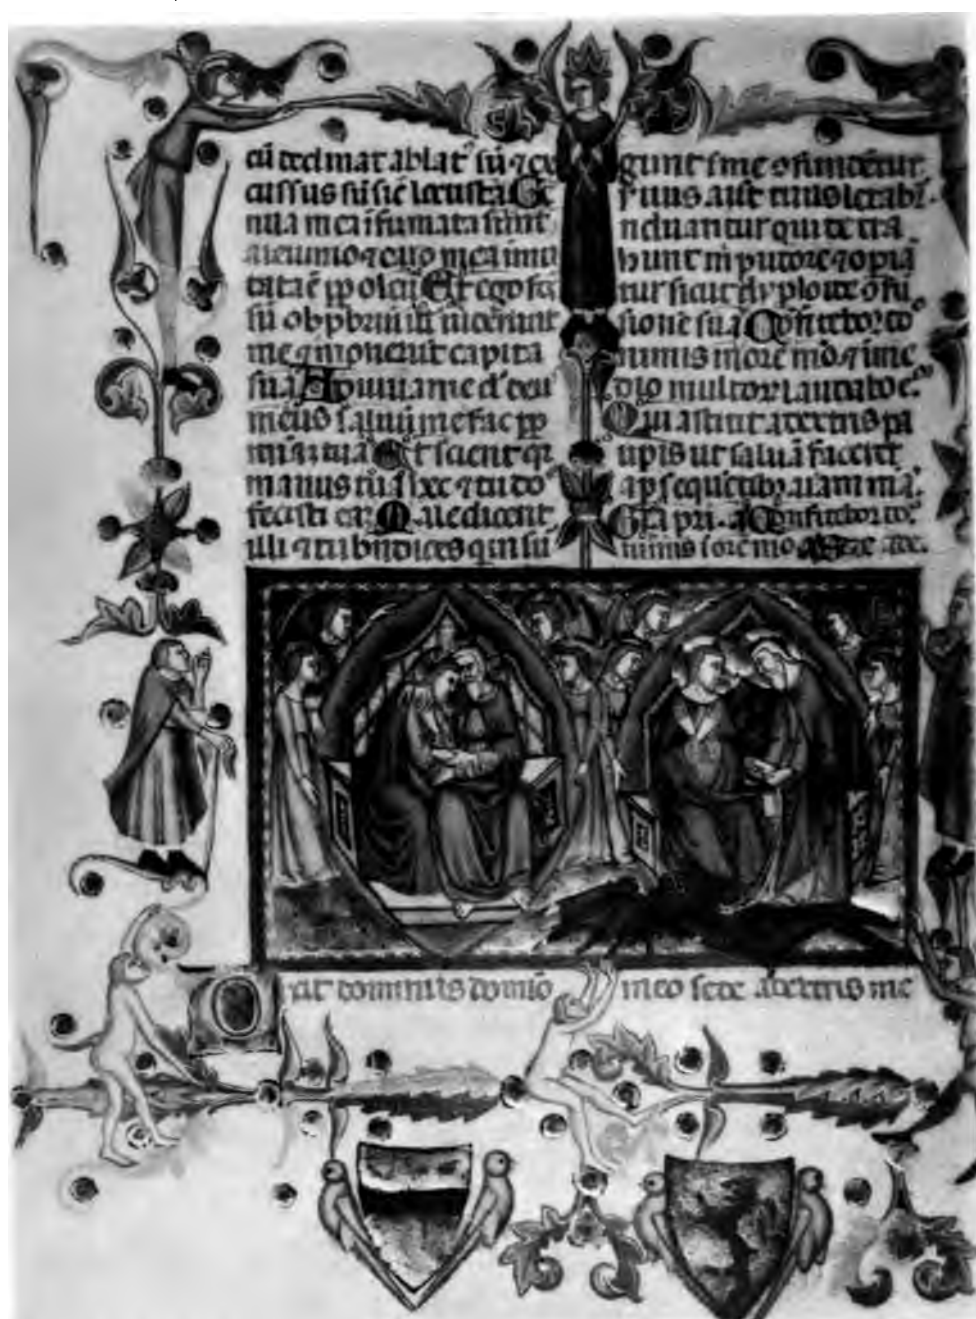 cū declinat ablat᷒ sū ⁊ ex
cussus sū sic̄ locusta Ge
nua mea īfirmata sunt
a ieiunio ⁊ caro mea īmu
tata ē ꝓp oleū Et ego fc̄
sū obꝓbriū illi uiderunt
me ⁊ mouerūt capita
sua Adiuua me dn̄e deus
meus saluū me fac ꝓp
miam tuā Et sciant qr
manus tua hec ⁊ tu dn̄e
fecisti eā Maledicent
illi ⁊ tu bn̄dices qui in su
gunt in me ↄfundētur
seruus aut tuus letabit.
Induantur qui detra
hunt m pudore ⁊ opiā
tur sicut dyploide ↄfu
sione sua Confitebor do
nimis in ore mō ⁊ ī me
dio multorum laudabo eū
Qui astitit a dextris pau
peris ut saluā faceret
a persequētib᷒ aīam meā
Gla pri. a Confitebor do
nimis ī ore mo
Dixit dominus domīo meo sede a dextris me